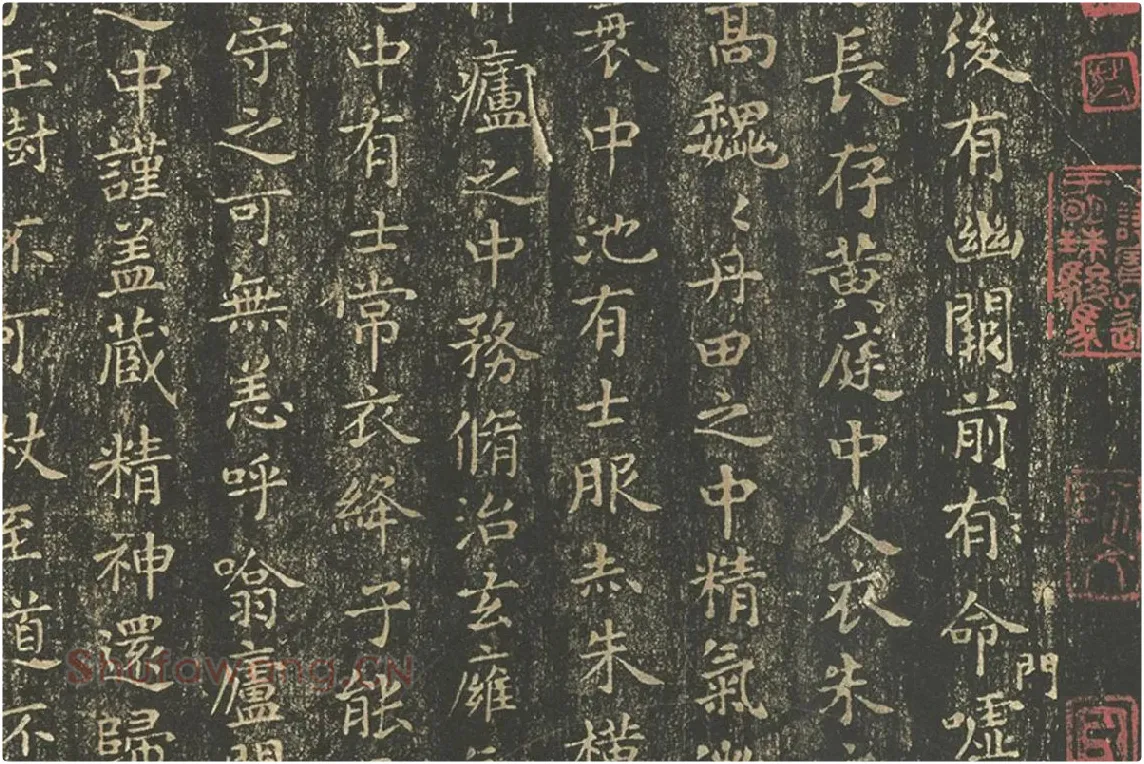 後有幽闕前有命門噓
長存黄庭中人衣朱
高巍〻丹田之中精氣
中池有士服赤朱橫
廬之中務脩治玄廱
中有士常衣絳子能
守之可無恙呼噏廬
之中謹盖蔵精神還歸
玉樹不可杖至道不
Shufawang.CN